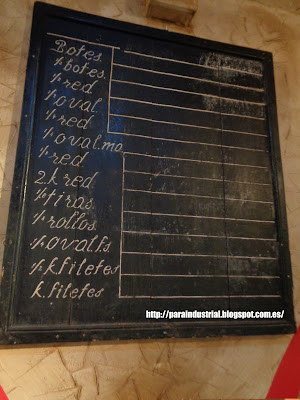 Botes.
½ botes.
½ red
¼ oval
¼ red
⅛ oval.ma
⅛ red
2.k red
½ tiras.
½ rollos.
½ oval.fs
½ k.filetes
k.filetes
http://paraindustrial.blogspot.com.es/